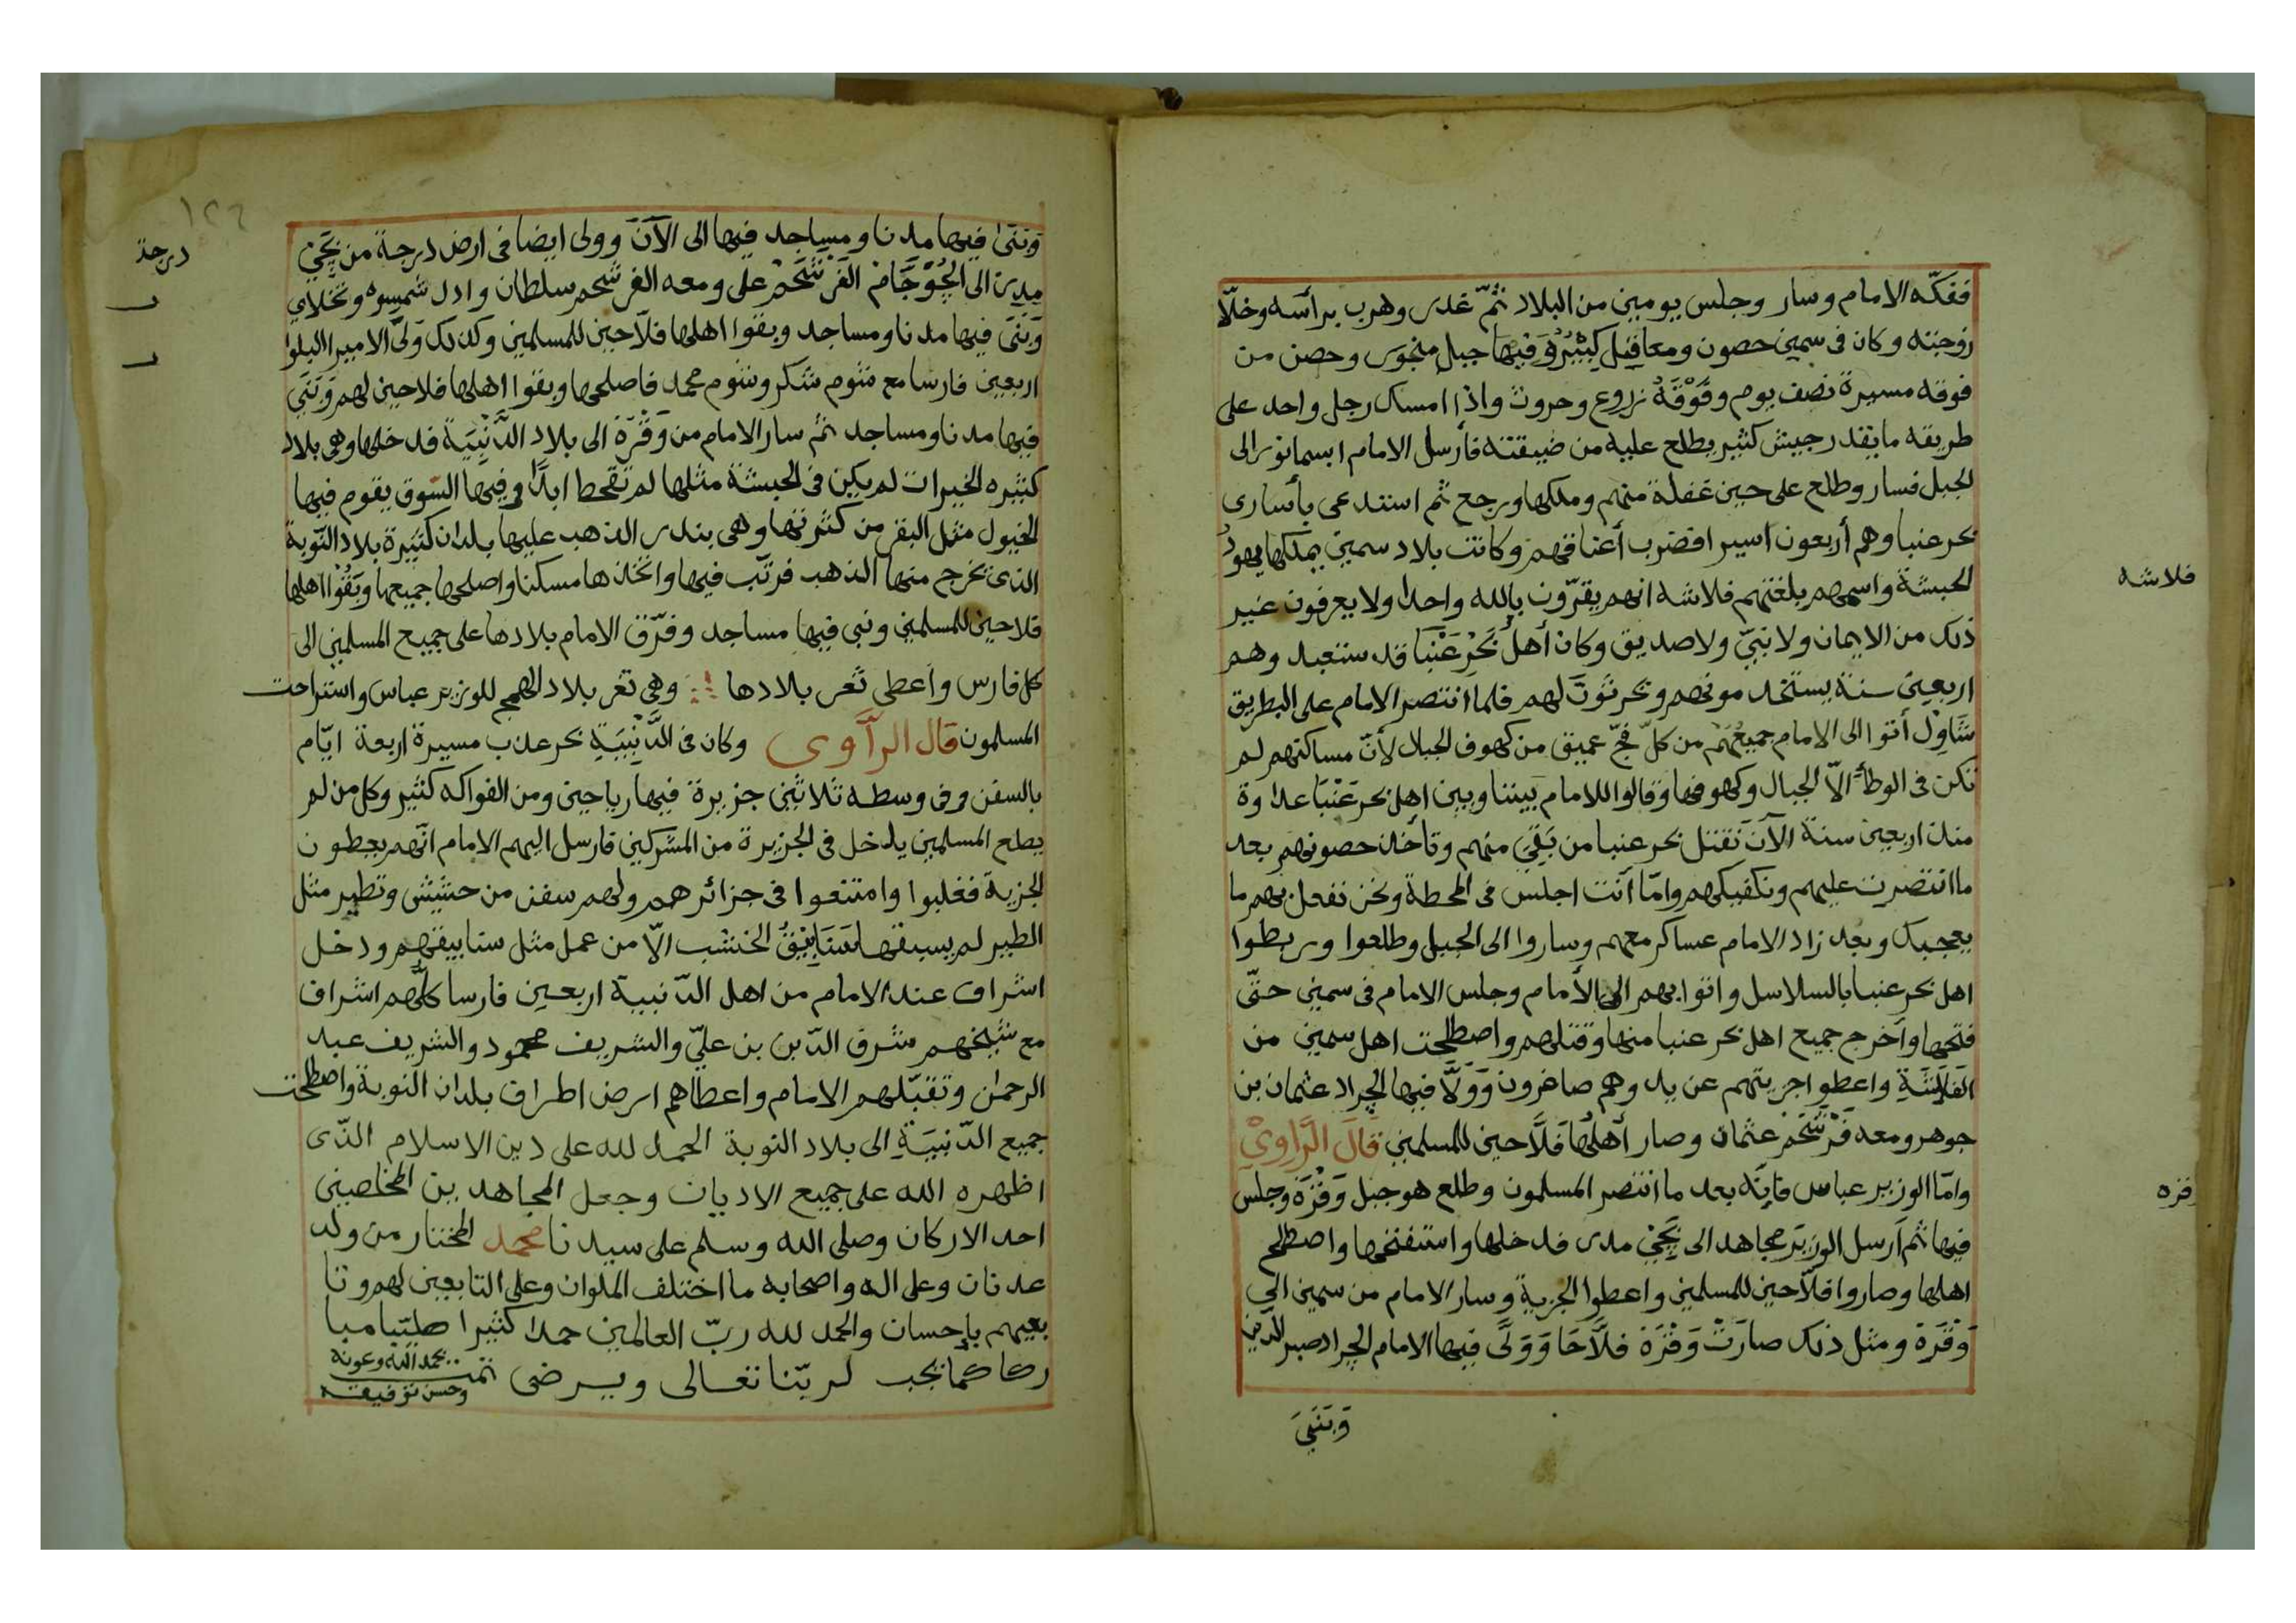 ففكّه الامام وسار وجلس يومين من البلاد ثمّ غدر وهرب برأسه وخلّا
زوجته وكان فى سمين حصون ومعاقل كثيرة وفيها جبل منجوس وحصن من
فوقه مسيرة نصف يوم وفَوْقَهُ زروع وحروث واذا امسك رجل واحد على
طريقه ما يقدر جيش كثير يطلع عليه من ضيقته فأرسل الامام ابسمانور الى
الجبل فسار وطلع على حين غفلة منهم وملكها ورجع ثم استدعى بأسارى
بحر عنبا وهم أربعون اسيرا فضرب أعناقهم وكانت بلاد سمين يملكها يهود
فلاشه
الحبشة واسمهم بلغتهم فلاشه انهم يقرّون بالله واحدا ولا يعرفون غير
ذلك من الايمان ولا نبيّ ولا صديق وكان أهل بَحْرِ عَنْبَا قد ستعبد وهم
اربعين سنة يستخدموهم ويحرثون لهم فلما انتصر الامام على البطريق
شَاوِل أتوا الى الامام جميعهم من كلّ فجّ عميق من كهوف الجبال لأنّ مساكنهم لم
تكن فى الوطأ الّا الجبال وكهوفها وقالوا للامام بيننا وبين اهل بحر عَنْبَا عداوة
منذ اربعين سنة الآن نقتل بحر عنبا من بَقِيَ منهم ونأخذ حصونهم بعد
ما انتصرت عليهم ونكفيكهم وامّا أنت اجلس فى المحطة ونحن نفعل بهم ما
يعجبك وبعد زاد الامام عساكر معهم وساروا الى الجبل وطلعوا وربطوا
اهل بحر عنبا بالسلاسل واتوا بهم الى الأمام وجلس الامام فى سمين حتّى
فتحها وأخرج جميع اهل بحر عنبا منها وقتلهم واصطلحت اهل سمين من
الفَلَاشَةِ واعطوا جزيتهم عن يد وهم صاغرون وَوَلَّا فيها الجراد عثمان بن
جوهر ومعه فَرْشَحْم عثمان وصار أهلُهَا فلَّاحين للمسلمين قَالَ الرَّاوِىْ
وامّا الوزير عباس فإنّه بعد ما انتصر المسلمون وطلع هو جبل وَقَرَة وجلس
قره
فيها ثم أرسل الوزير مجاهد الى بَجَىْ مدر فدخلها واستفتحها واصطلح
اهلها وصاروا فلّاحين للمسلمين واعطوا الجزية وسار الامام من سمين الى
وَقَرَة ومثل ذلك صارَتْ وَقَرَة فلَّاحَا وَوَلَّى فيها الامام الجراد صبر الدين
وَبَنَىَ
درجة
وَبَنَىٰ فيها مدنا ومساجد فيها الى الآنَ وولى ايضا فى ارض درجة من بَجَىْ
مِدِرْ الى الجُوّجَّامْ الفَرْشَحْم على ومعه الفرشحم سلطان وادل شمسوه وتخلاى
وَبَنَى فيها مدنا ومساجد وبقوا اهلها فلّاحين للمسلمين وكذلك وَلَّى الامير ابالبلوا
اربعين فارسا مع شوم شكر وشوم محمد فاصلحها وبقوا اهلها فلاحين لهم وَبَنَى
فيها مدنا ومساجد ثم سار الامام من وَقَرَة الى بلاد الدَّنْبِيَة فدخلها وهى بلاد
كثيره الخيرات لم يكن فى الحبشة مثلها لم تقحط ابدًا وفيها السّوق يقوم فيها
الخيول مثل البقر من كثرتها وهى بندر الذهب عليها بلدان كثيرة بلاد النّوبة
الذى يخرج منها الذهب فرتّب فيها واتّخذها مسكنا واصلحها جميعها وبَقُوْا اهلها
فلاحين للمسلمين وبنى فيها مساجد وفرّق الامام بلادها على جميع المسلمين الى
كل فارس وأعطى ثغر بلادها وهى ثغر بلاد الهمج للوزير عباس واستراحت
المسلمون قال الرَّاوى وكان فى الدَّنْبِيَةِ بحر عذب مسيرة اربعة ايّام
بالسفن وفى وسطه ثلاثين جزيرة فيها رياحين ومن الفواكه كثير وكل من لم
يطع المسلمين يدخل فى الجزيرة من المشركين فارسل اليهم الامام انّهم يعطون
الجزية فغلبوا وامتنعوا فى جزائرهم ولهم سفن من حشيش وتطير مثل
الطير لم يسبقها سَنَابِيْقُ الخشب الّا من عمل مثل سنابيقهم ودخل
اشراف عند الامام من اهل الدّنبية اربعين فارسا كلّهم اشراف
مع شيخهم شرف الدّين بن عليّ والشريف محمود والشريف عبد
الرحمن وتقبّلهم الامام واعطاهم ارض اطراف بلدان النوبة واصطلحت
جميع الدّنبيَةِ الى بلاد النوبة الحمد لله على دين الاسلام الذّى
اظهره الله على جميع الاديان وجعل المجاهدين المخلصين
احد الاركان وصلى الله وسلم على سيدنا محمد المختار من ولد
عدنان وعلى اله واصحابه ما اختلف الملوان وعلى التابعين لهم وتا
بعيهم بإحسان والحمد لله ربّ العالمين حمدا كثيرا طيّبا مبا
ركا كما يحب لربّنا تعالى ويرضى تمت بحمد الله وعونه
وحسن توفيقه